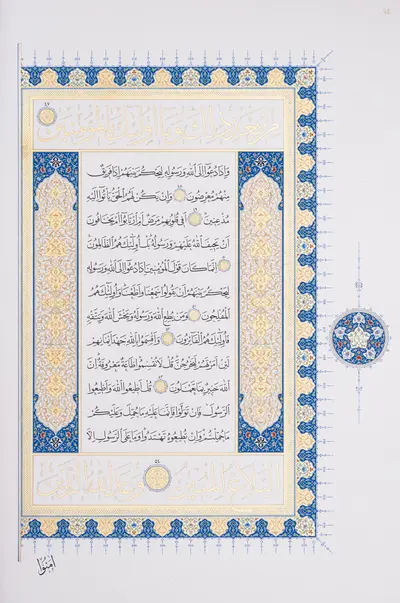 مِّنۢ بَعْدِ ذَٰلِكَ وَمَآ أُو۟لَٰٓئِكَ بِٱلْمُؤْمِنِينَ ٤٧
وَإِذَا دُعُوٓا۟ إِلَى ٱللَّهِ وَرَسُولِهِۦ لِيَحْكُمَ بَيْنَهُمْ إِذَا فَرِيقٌ
مِّنْهُم مُّعْرِضُونَ ٤٨ وَإِن يَكُن لَّهُمُ ٱلْحَقُّ يَأْتُوٓا۟ إِلَيْهِ
مُذْعِنِينَ ٤٩ أَفِى قُلُوبِهِم مَّرَضٌ أَمِ ٱرْتَابُوٓا۟ أَمْ يَخَافُونَ
أَن يَحِيفَ ٱللَّهُ عَلَيْهِمْ وَرَسُولُهُۥ بَلْ أُو۟لَٰٓئِكَ هُمُ ٱلظَّالِمُونَ
٥٠ إِنَّمَا كَانَ قَوْلَ ٱلْمُؤْمِنِينَ إِذَا دُعُوٓا۟ إِلَى ٱللَّهِ وَرَسُولِهِۦ
لِيَحْكُمَ بَيْنَهُمْ أَن يَقُولُوا۟ سَمِعْنَا وَأَطَعْنَا وَأُو۟لَٰٓئِكَ هُمُ
ٱلْمُفْلِحُونَ ٥١ وَمَن يُطِعِ ٱللَّهَ وَرَسُولَهُۥ وَيَخْشَ ٱللَّهَ وَيَتَّقْهِ
فَأُو۟لَٰٓئِكَ هُمُ ٱلْفَآئِزُونَ ٥٢ وَأَقْسَمُوا۟ بِٱللَّهِ جَهْدَ أَيْمَانِهِمْ
لَئِنْ أَمَرْتَهُمْ لَيَخْرُجُنَّ قُل لَّا تُقْسِمُوا۟ طَاعَةٌ مَّعْرُوفَةٌ إِنَّ
ٱللَّهَ خَبِيرٌۢ بِمَا تَعْمَلُونَ ٥٣ قُلْ أَطِيعُوا۟ ٱللَّهَ وَأَطِيعُوا۟
ٱلرَّسُولَ فَإِن تَوَلَّوْا۟ فَإِنَّمَا عَلَيْهِ مَا حُمِّلَ وَعَلَيْكُم
مَّا حُمِّلْتُمْ وَإِن تُطِيعُوهُ تَهْتَدُوا۟ وَمَا عَلَى ٱلرَّسُولِ إِلَّا
ٱلْبَلَٰغُ ٱلْمُبِينُ ٥٤ وَعَدَ ٱللَّهُ ٱلَّذِينَ
آمَنُوا